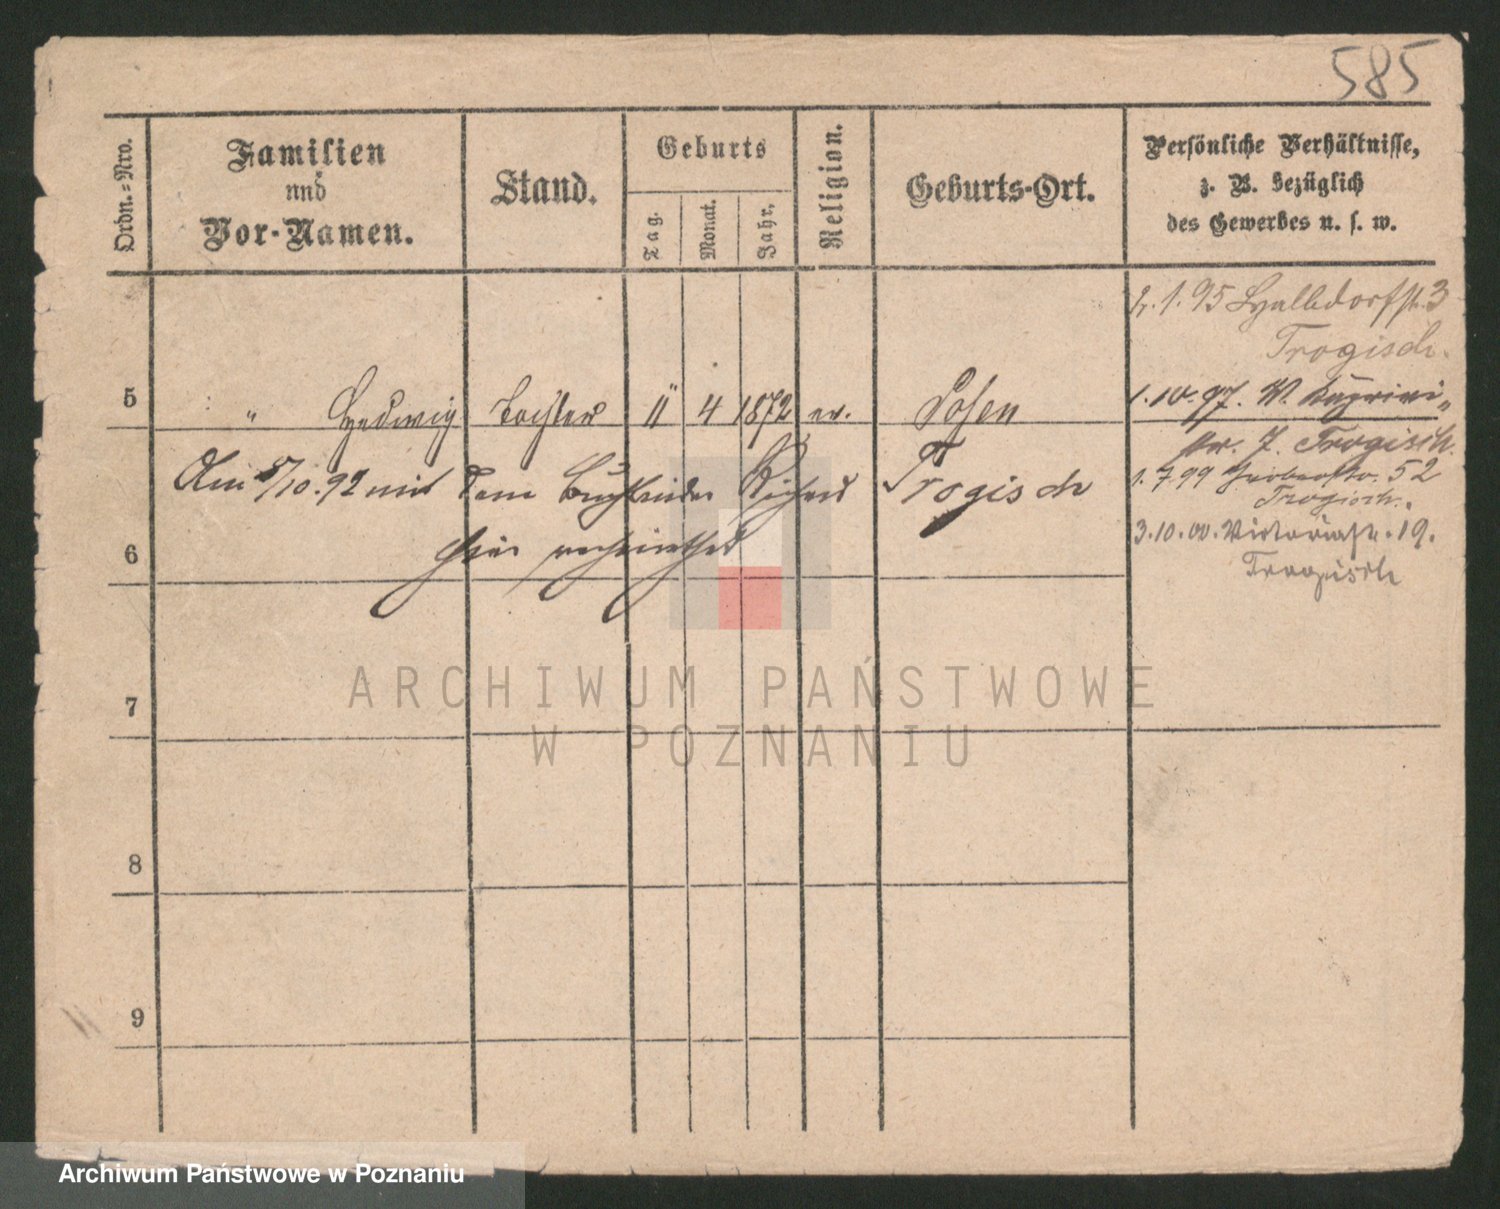 585
Ordn.=Nro.
Familien
und
Vor-Namen.
Stand.
Geburts
Tag.
Monat.
Jahr.
Religion.
Geburts-Ort.
Persönliche Verhältnisse,
z. B. bezüglich
des Gewerbes u. s. w.
1.95 Halbdorfstr. 3
Trogisch.
5 " Hedwig Tochter 11 4 1872 ev. Posen
1.10.97. W.
Trogisch.
Am 5/10.92 mit dem Buchbinder Richard Trogisch
1.7.99 52
Trogisch.
6 hier verheirathet
3.10.00. Victoriastr. 19.
Trogisch
7
8
9
ARCHIWUM PAŃSTWOWE
W POZNANIU
Archiwum Państwowe w Poznaniu